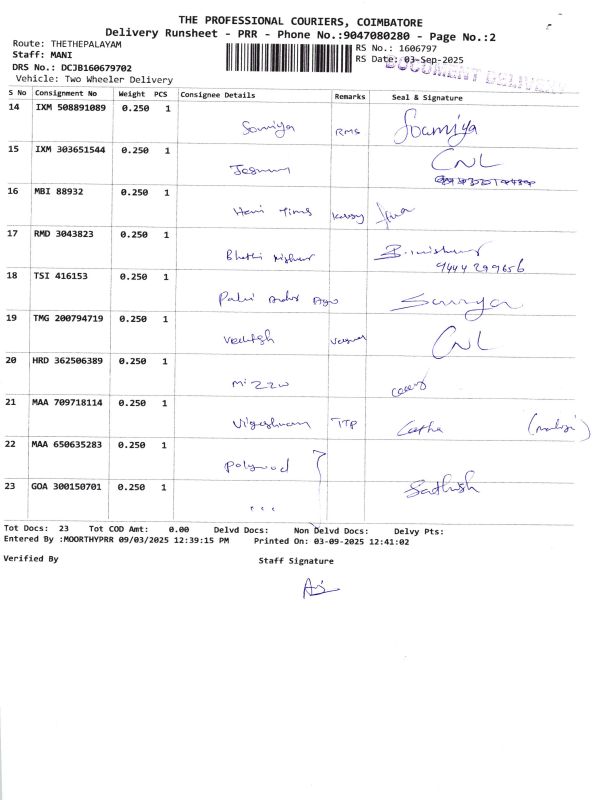 THE PROFESSIONAL COURIERS, COIMBATORE
Delivery Runsheet - PRR - Phone No.:9047080280 - Page No.:2
Route: THETHEPALAYAM
Staff: MANI
DRS No.: DCJB160679702
Vehicle: Two Wheeler Delivery
RS No.: 1606797
RS Date: 03-Sep-2025
DOCUMENT DELIVERY
S No Consignment No Weight PCS Consignee Details Remarks Seal & Signature
14 IXM 508891089 0.250 1
Soumiya RMS Soumiya
15 IXM 303651544 0.250 1
CNL
16 MBI 88932 0.250 1
17 RMD 3043823 0.250 1
9444299656
18 TSI 416153 0.250 1
19 TMG 200794719 0.250 1
CNL
20 HRD 362506389 0.250 1
21 MAA 709718114 0.250 1
TTP
22 MAA 650635283 0.250 1
polywood
23 GOA 300150701 0.250 1
Sathish
Tot Docs: 23 Tot COD Amt: 0.00 Delvd Docs: Non Delvd Docs: Delvy Pts:
Entered By :MOORTHYPRR 09/03/2025 12:39:15 PM Printed On: 03-09-2025 12:41:02
Verified By Staff Signature